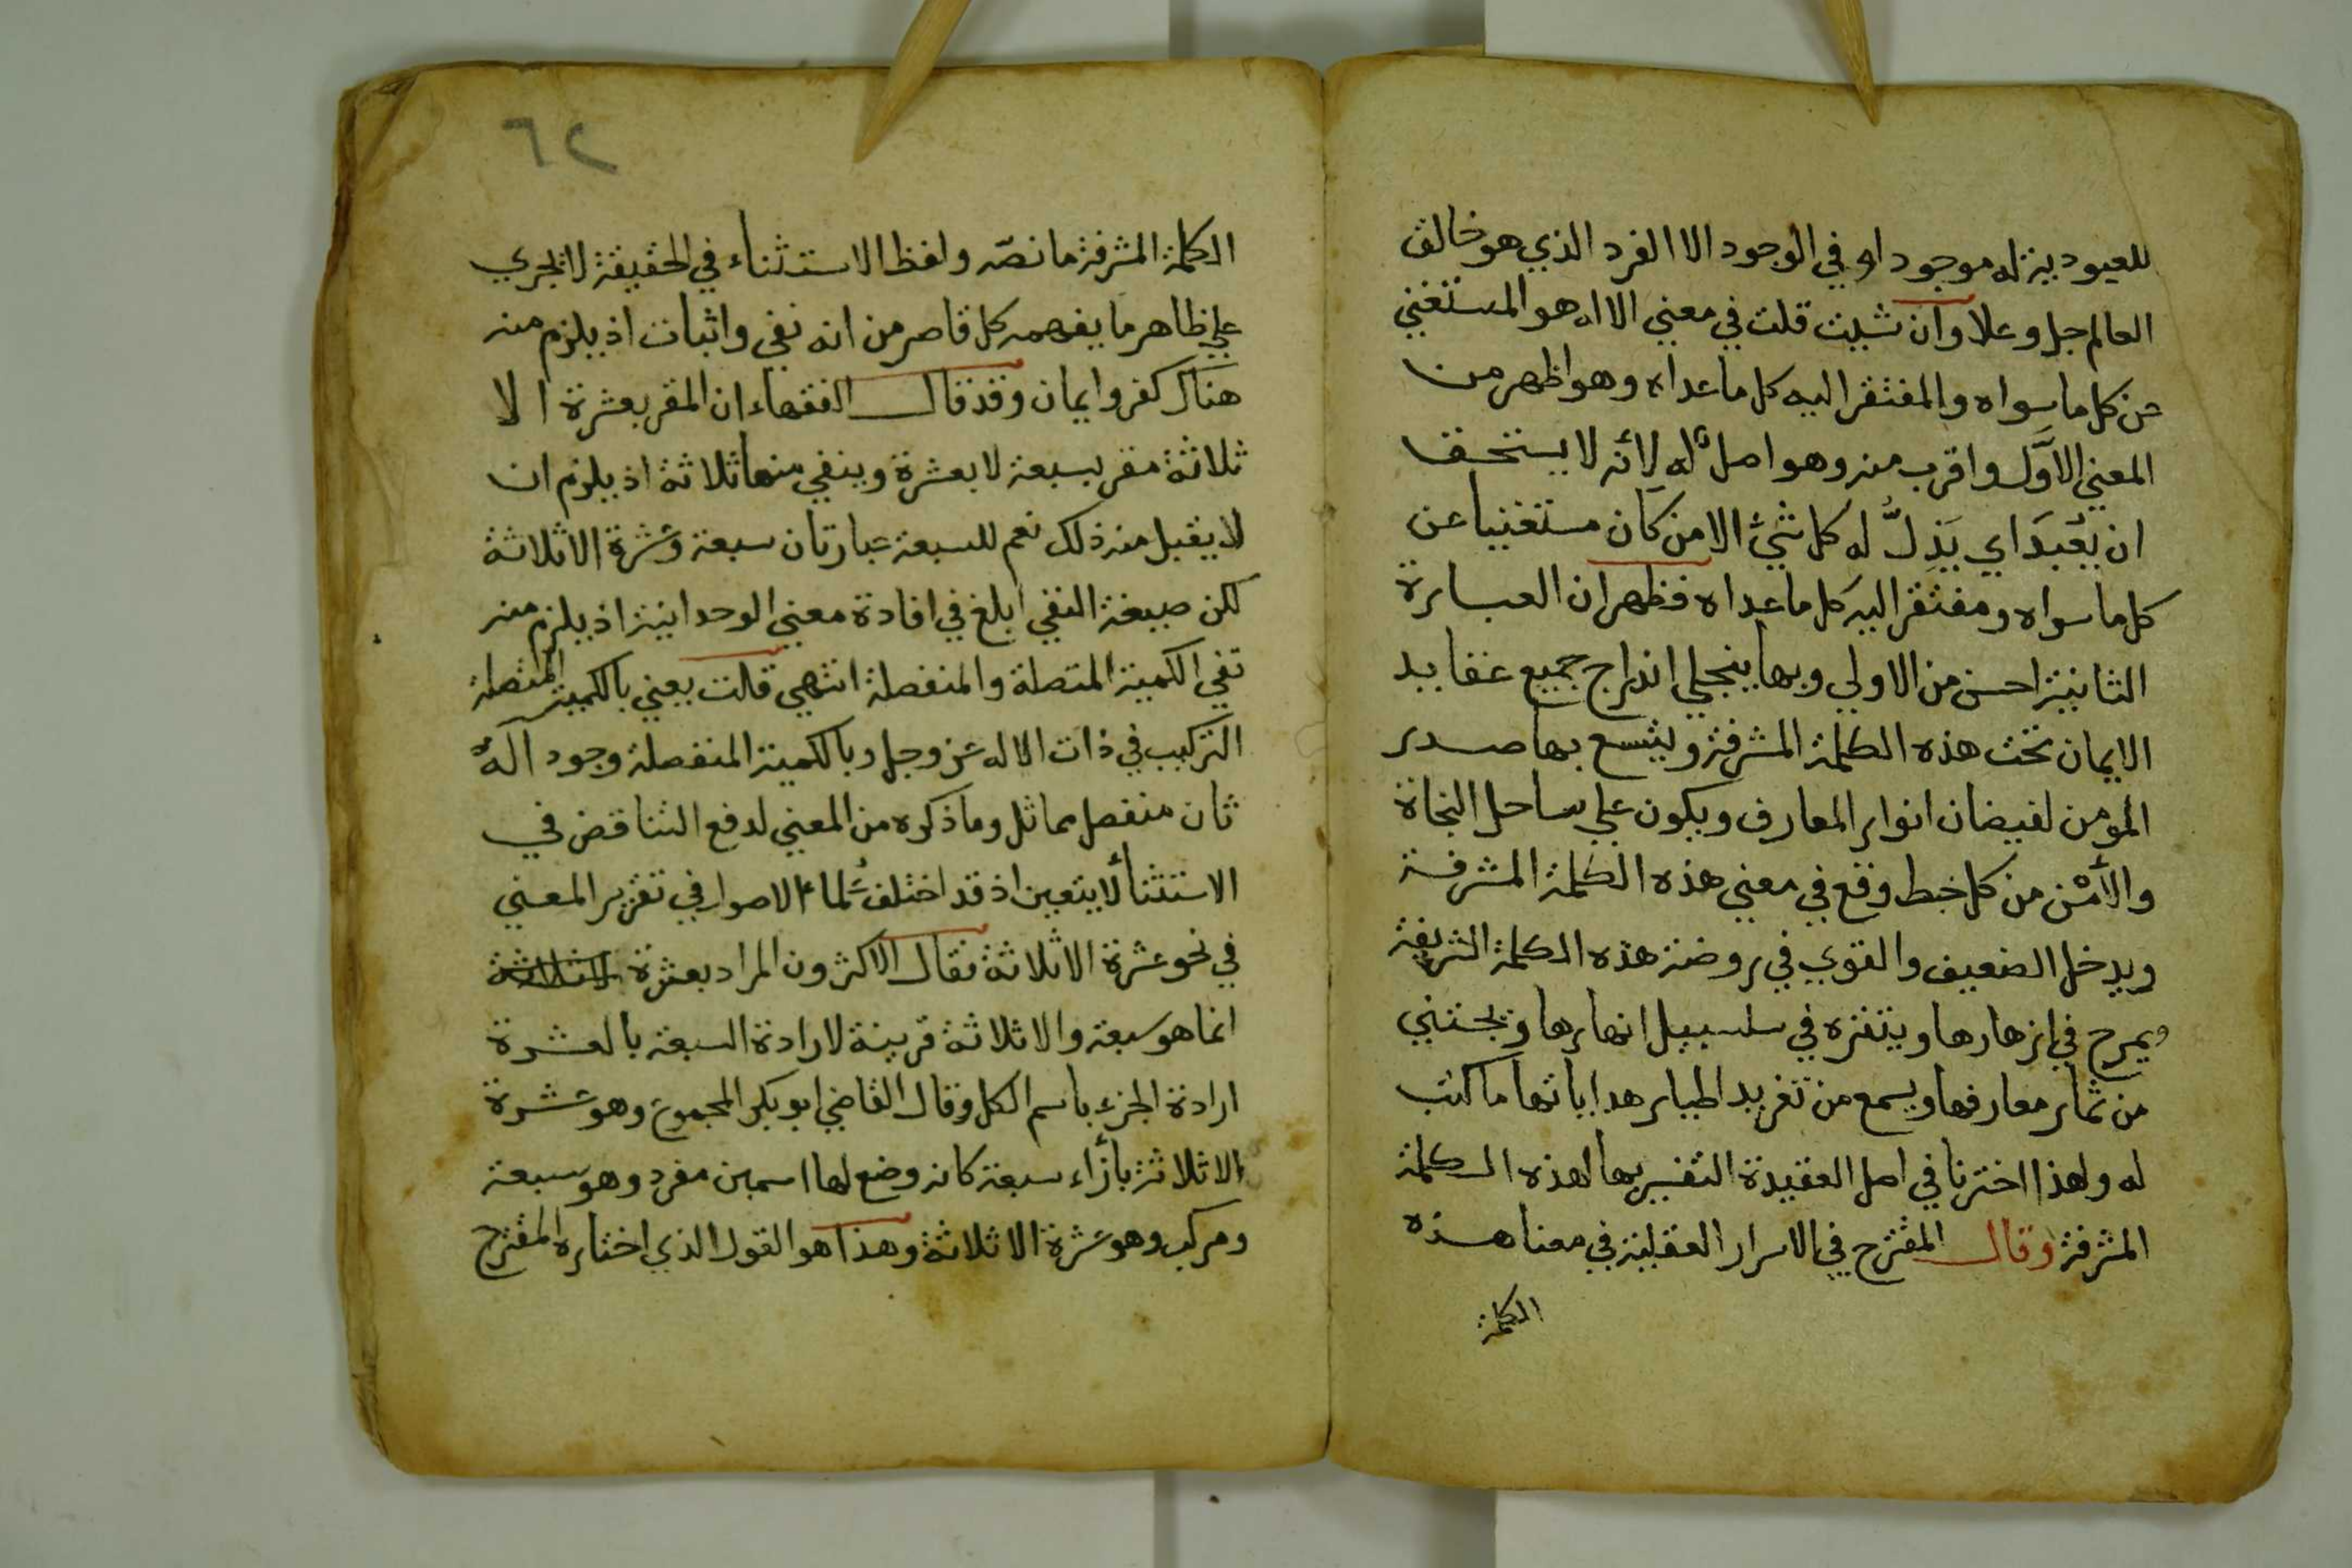 للعبودية له موجود او في الوجود الا الفرد الذي هو خالق
العالم جل وعلا وان شيت قلت في معني الا اله هو المستغني
عن كل ما سواه والمفتقر اليه كل ما عداه وهو اظهر من
المعني الاوَّل واقرب منه وهو اصلٌ له لأنه لا يستحق
ان يُعْبَدَ اي يَذِلُّ له كل شيْئ الا من كان مستغنيا عن
كل ما سواه ومفتقر اليه كل ما عداه فظهر ان العبارة
الثانية احسن من الاولي وبها ينجلي اندراج جميع عقايد
الايمان تحت هذه الكلمة المشرفة ويتسع بها صدر
المومن لفيضان انوار المعارف ويكون علي ساحل النجاة
والأمْن من كل خبط وقع في معني هذه الكلمة المشرفة
ويدخل الضعيف والقوي في روضة هذه الكلمة الشريفة
ويمرح في ازهارها ويتنزه في سلسبيل انهارها ويجتني
من ثمار معارفها ويسمع من تغريد اطيار هداياتها ما كتب
له ولهذا اخترنا في اصل العقيدة التفسير بها لهذه الكلمة
المشرفة وقال المقترح في الاسرار العقلية في معنا هذه
الكلمة
٦٢
الكلمة المشرفة ما نصّه ولفظ الاستثناء في الحقيقة لا يجري
علي ظاهر ما يفهمه كل قاصر من انه نفي واثبات اذ يلزم منه
هناك كفر وايمان وقد قال الفقهاء ان المقر بعشرة الا
ثلاثة مقر بسبعة لا بعشرة وينفي منها ثلاثة اذ يلزم ان
لا يقبل منه ذلك نعم للسبعة عبارتان سبعة وعشرة الا ثلاثة
لكن صيغة النفي ابلغ في افادة معني الوحدانية اذ يلزم منه
نفي الكمية المتصلة والمنفصلة انتهي قلت يعني بالكمية المتصلة
التركيب في ذات الاله عز وجل وبالكمية المنفصلة وجود الهٍ
ثان منفصل مماثل وما ذكره من المعني لدفع التناقض في
الاستثنأ لا يتعين اذ قد اختلف عُلماء الاصول في تقرير المعني
في نحو عشرة الا ثلاثة فقال الاكثرون المراد بعشرة الا ثلاثة
انما هو سبعة والا ثلاثة قرينة لارادة السبعة بالعشرة
ارادة الجزء باسم الكل وقال القاضي ابو بكر المجموع وهو عشرة
الا ثلاثة بأزاء سبعة كانه وضع لها اسمين مفرد وهو سبعة
ومركب وهو عشرة الا ثلاثة وهذا هو القول الذي اختاره المقترح